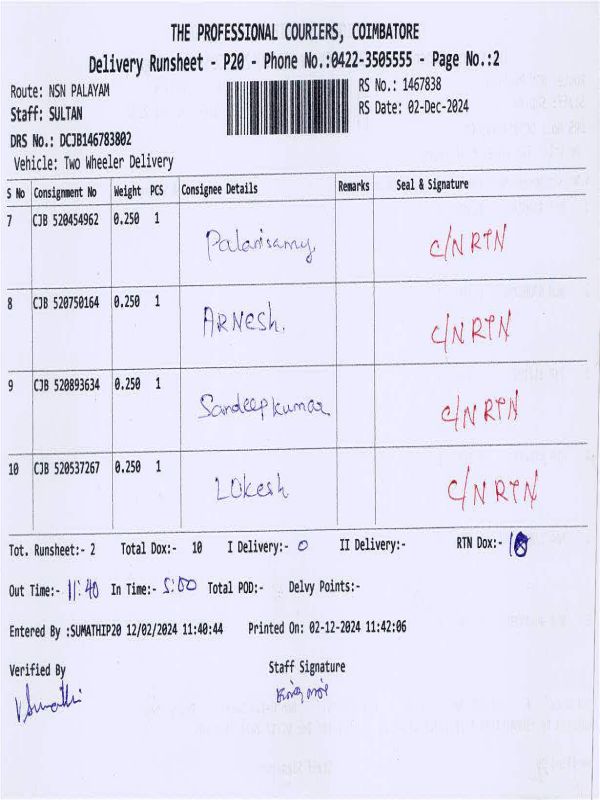 THE PROFESSIONAL COURIERS, COIMBATORE
Delivery Runsheet - P20 - Phone No.:0422-3505555 - Page No.:2
Route: NSN PALAYAM RS No.: 1467838
Staff: SULTAN RS Date: 02-Dec-2024
DRS No.: DCJB146783802
Vehicle: Two Wheeler Delivery
S No Consignment No Weight PCS Consignee Details Remarks Seal & Signature
7 CJB 520454962 0.250 1 Palanisamy C/N RTN
8 CJB 520750164 0.250 1 ARNESH. C/N RTN
9 CJB 520893634 0.250 1 Sandeepkumar C/N RTN
10 CJB 520537267 0.250 1 LOkesh C/N RTN
Tot. Runsheet:- 2 Total Dox:- 10 I Delivery:- 0 II Delivery:- RTN Dox:-
Out Time:- 11:40 In Time:- 5:00 Total POD:- Delvy Points:-
Entered By :SUMATHIP20 12/02/2024 11:40:44 Printed On: 02-12-2024 11:42:06
Verified By Staff Signature
V Sumathi